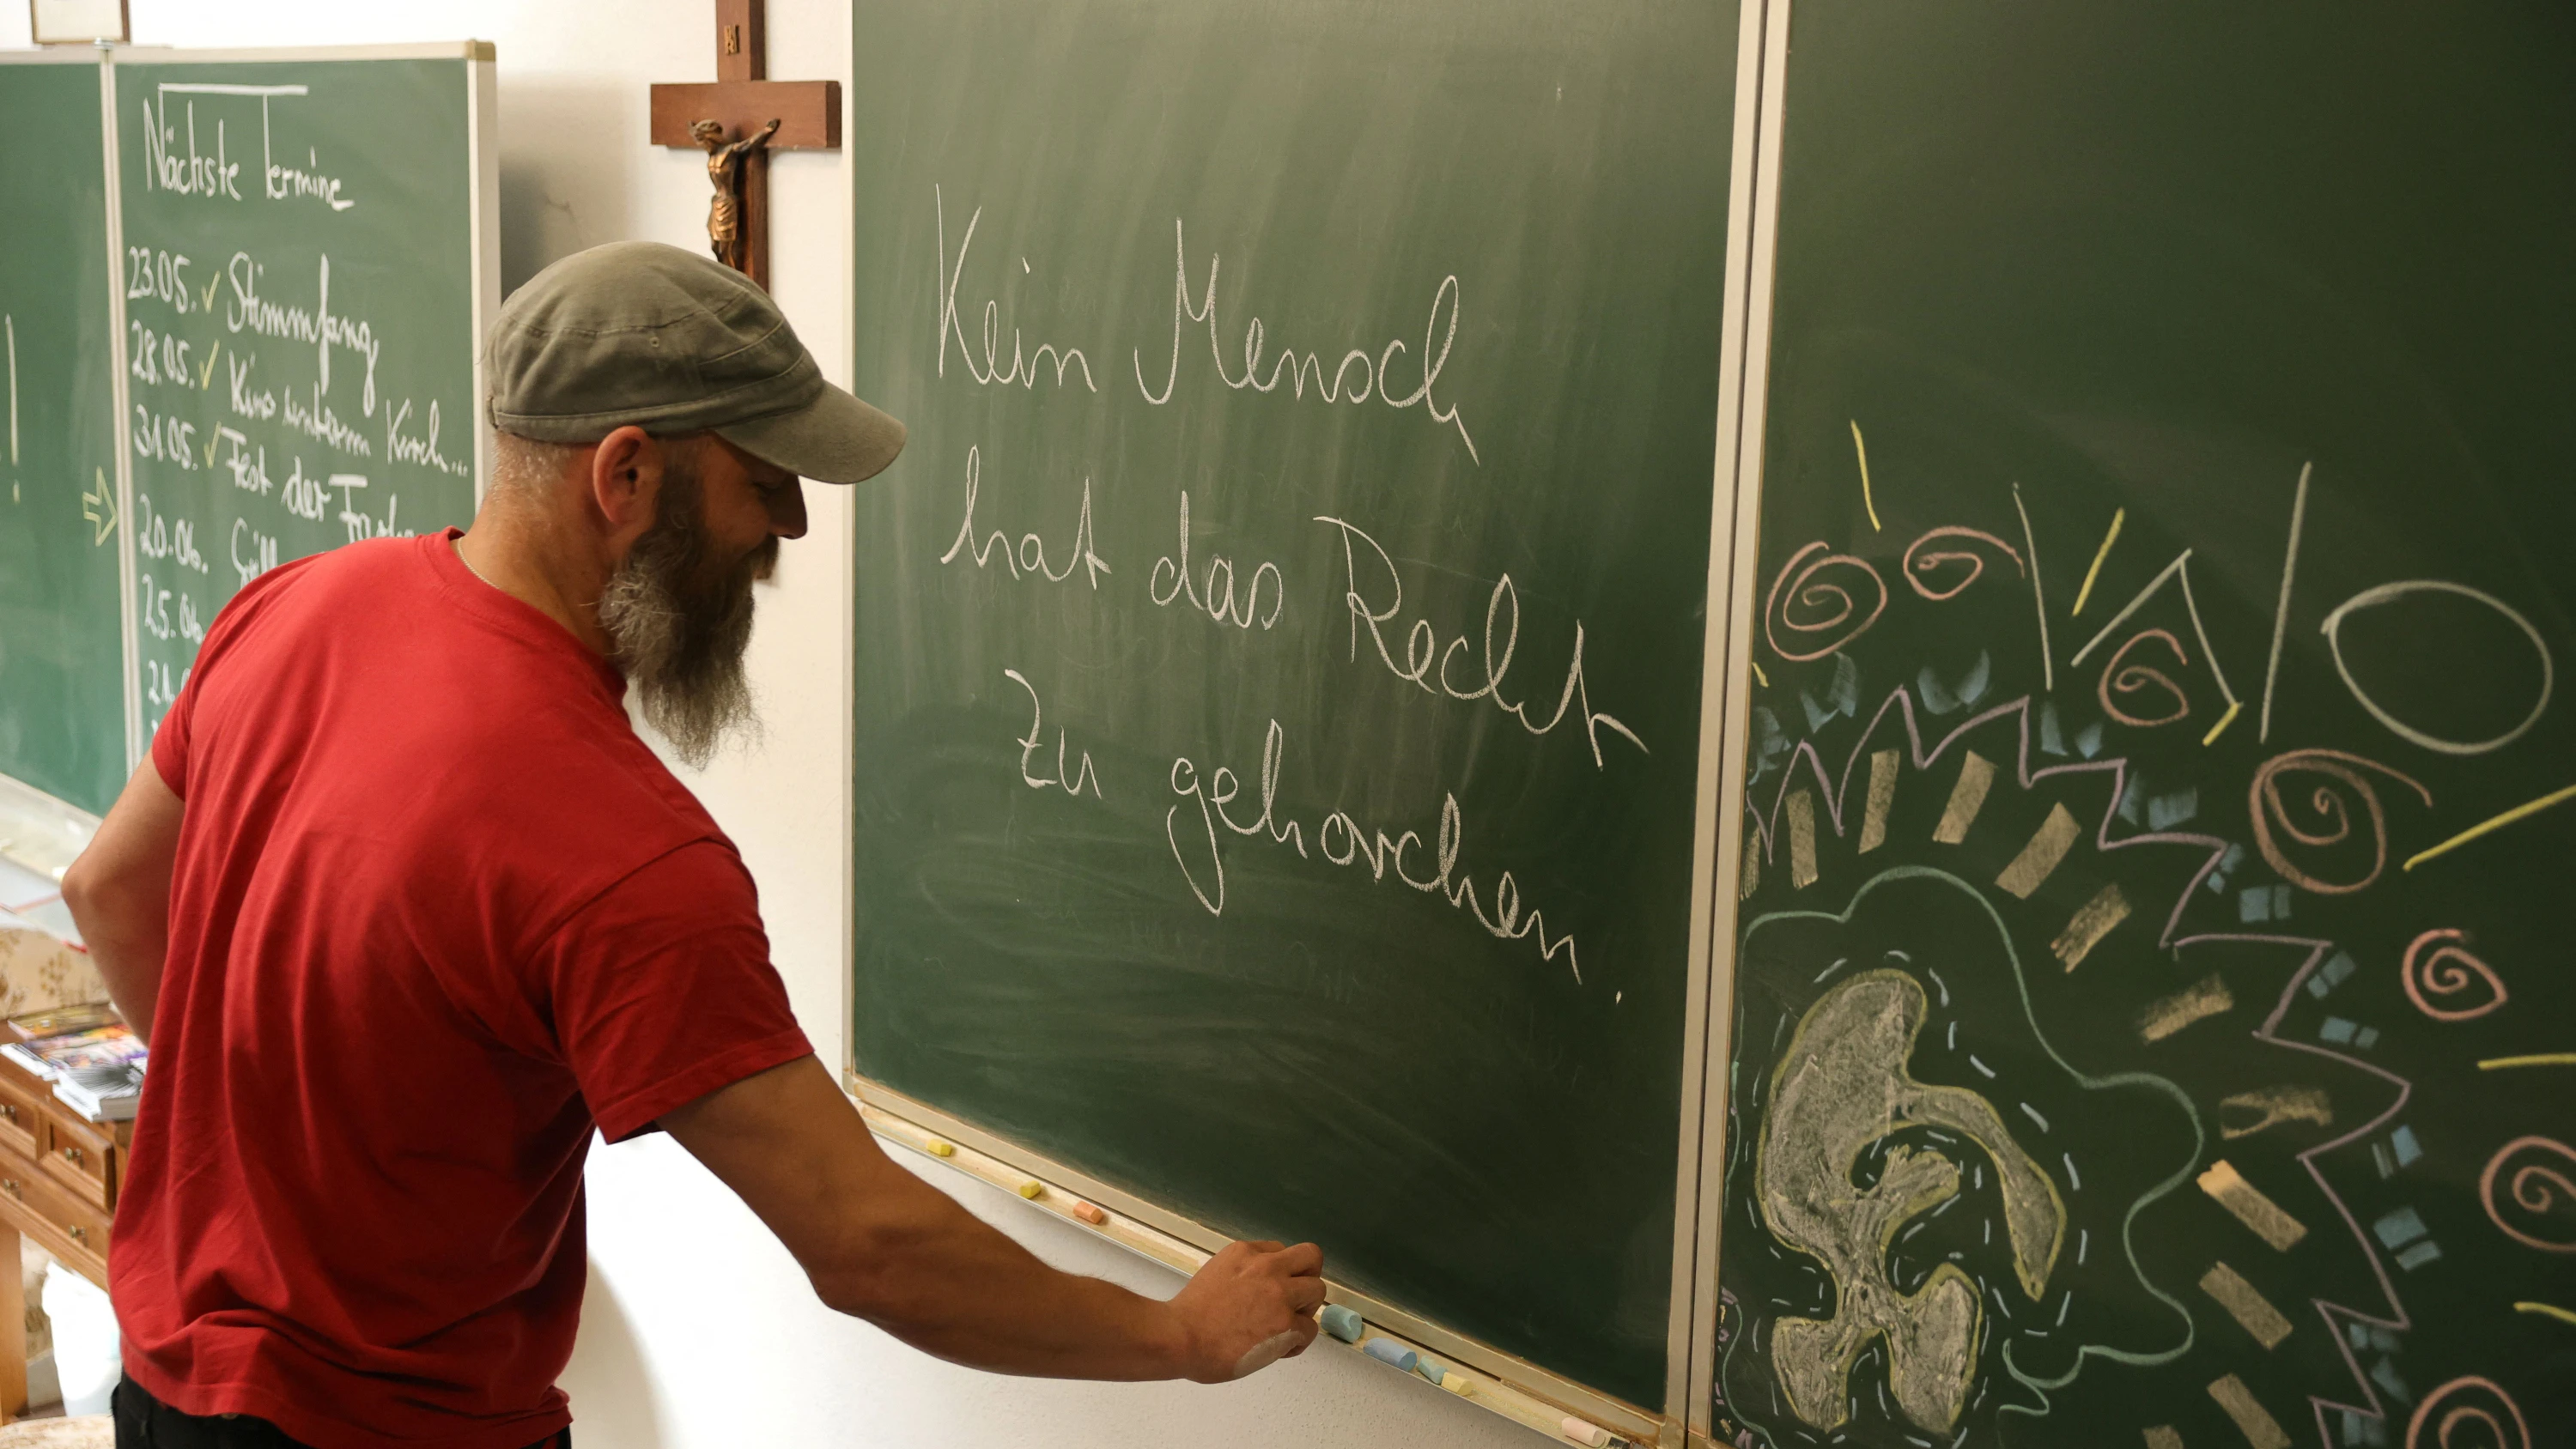 Nächste Termine
23.05. ✓ Stimmfang
28.05. ✓ Kino unterm Kirch...
31.05. ✓ Fest der
20.06.
25.06
Kein Mensch
hat das Recht
zu gehorchen.